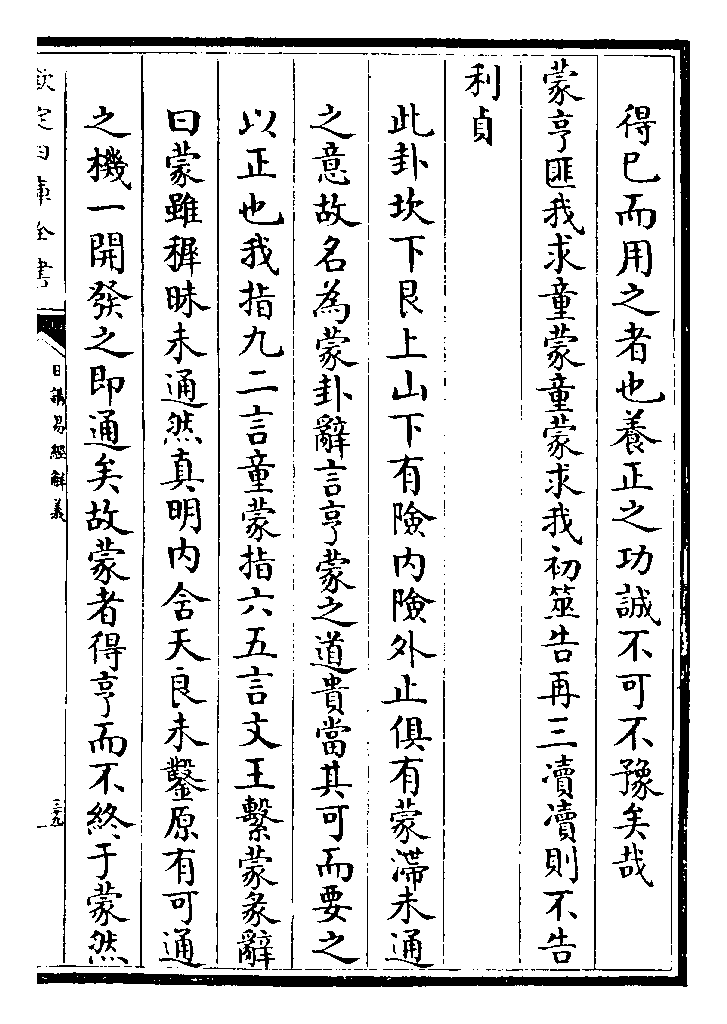 得已而用之者也養正之功誠不可不豫矣哉
蒙亨匪我求童蒙童蒙求我初筮告再三瀆瀆則不告
利貞
此卦坎下艮上山下有險內險外止俱有蒙滯未通
之意故名為蒙卦辭言亨蒙之道貴當其可而要之
以正也我指九二言童蒙指六五言文王繫蒙彖辭
曰蒙雖穉昧未通然真明內含天良未鑿原有可通
之機一開發之即通矣故蒙者得亨而不終于蒙然
欽定四庫全書
日講易經解義
三十九